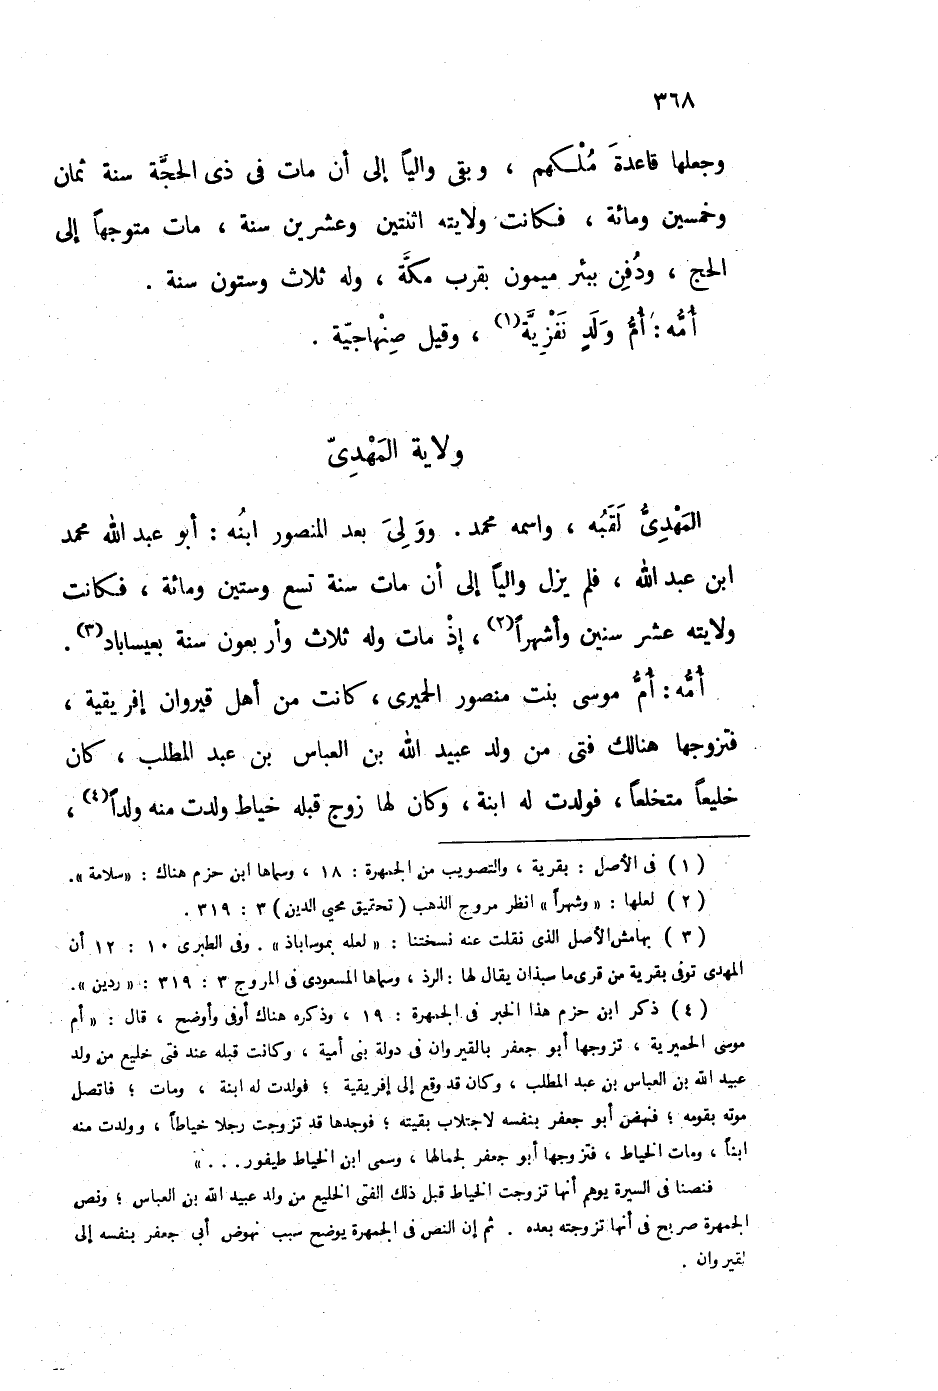 ٣٦٨
وجعلها قاعدةَ مُلْكهم ، وبقى والياً إلى أن مات فى ذى الحجَّة سنة ثمان
وخمسين ومائة ، فكانت ولايته اثنتين وعشرين سنة ، مات متوجهاً إلى
الحج ، ودُفِن ببئر ميمون بقرب مكَّة ، وله ثلاث وستون سنة .
أُمُّه : أُمُّ وَلَدٍ نَفْزِيَّة(١) ، وقيل صِنْهاجيّة .
ولاية المَهْدِىّ
المَهْدِىُّ لَقَبُه ، واسمه محمد . ووَلِىَ بعد المنصور ابنُه : أبو عبد الله محمد
ابن عبد الله ، فلم يزل والياً إلى أن مات سنة تسع وستين ومائة ، فكانت
ولايته عشر سنين وأشهراً(٢) ، إذْ مات وله ثلاث وأربعون سنة بعيساباد(٣) .
أُمُّه : أُمُّ موسى بنت منصور الحميرى ، كانت من أهل قيروان إفريقية ،
فتزوجها هنالك فتى من ولد عبيد الله بن العباس بن عبد المطلب ، كان
خليعاً متخلعاً ، فولدت له ابنة ، وكان لها زوج قبله خياط ولدت منه ولداً(٤) ،
(١) فى الأصل : بقرية ، والتصويب من الجمهرة : ١٨ ، وسماها ابن حزم هناك : «سلامة» .
(٢) لعلها : «وشهراً» انظر مروج الذهب (تحقيق محيي الدين) ٣ : ٣١٩ .
(٣) بهامش الأصل الذى نقلت عنه نسختنا : «لعله بموساباذ» . وفى الطبرى ١٠ : ١٢ أن
المهدى توفى بقرية من قرى ما سبذان يقال لها : الرذ ، وسماها المسعودى فى المروج ٣ : ٣١٩ : «ردين» .
(٤) ذكر ابن حزم هذا الخبر فى الجمهرة : ١٩ ، وذكره هناك أوفى وأوضح ، قال : «أم
موسى الحميرية ، تزوجها أبو جعفر بالقيروان فى دولة بنى أمية ، وكانت قبله عند فتى خليع من ولد
عبيد الله بن العباس بن عبد المطلب ، وكان قد وقع إلى إفريقية ؛ فولدت له ابنة ، ومات ؛ فاتصل
موته بقومه ؛ فنهض أبو جعفر بنفسه لاجتلاب بقيته ؛ فوجدها قد تزوجت رجلا خياطاً ، وولدت منه
ابناً ، ومات الخياط ، فتزوجها أبو جعفر لجمالها ، وسمى ابن الخياط طيفور . . . »
فنصنا فى السيرة يوهم أنها تزوجت الخياط قبل ذلك الفتى الخليع من ولد عبيد الله بن العباس ؛ ونص
الجمهرة صريح فى أنها تزوجته بعده . ثم إن النص فى الجمهرة يوضح سبب نهوض أبى جعفر بنفسه إلى
القيروان .